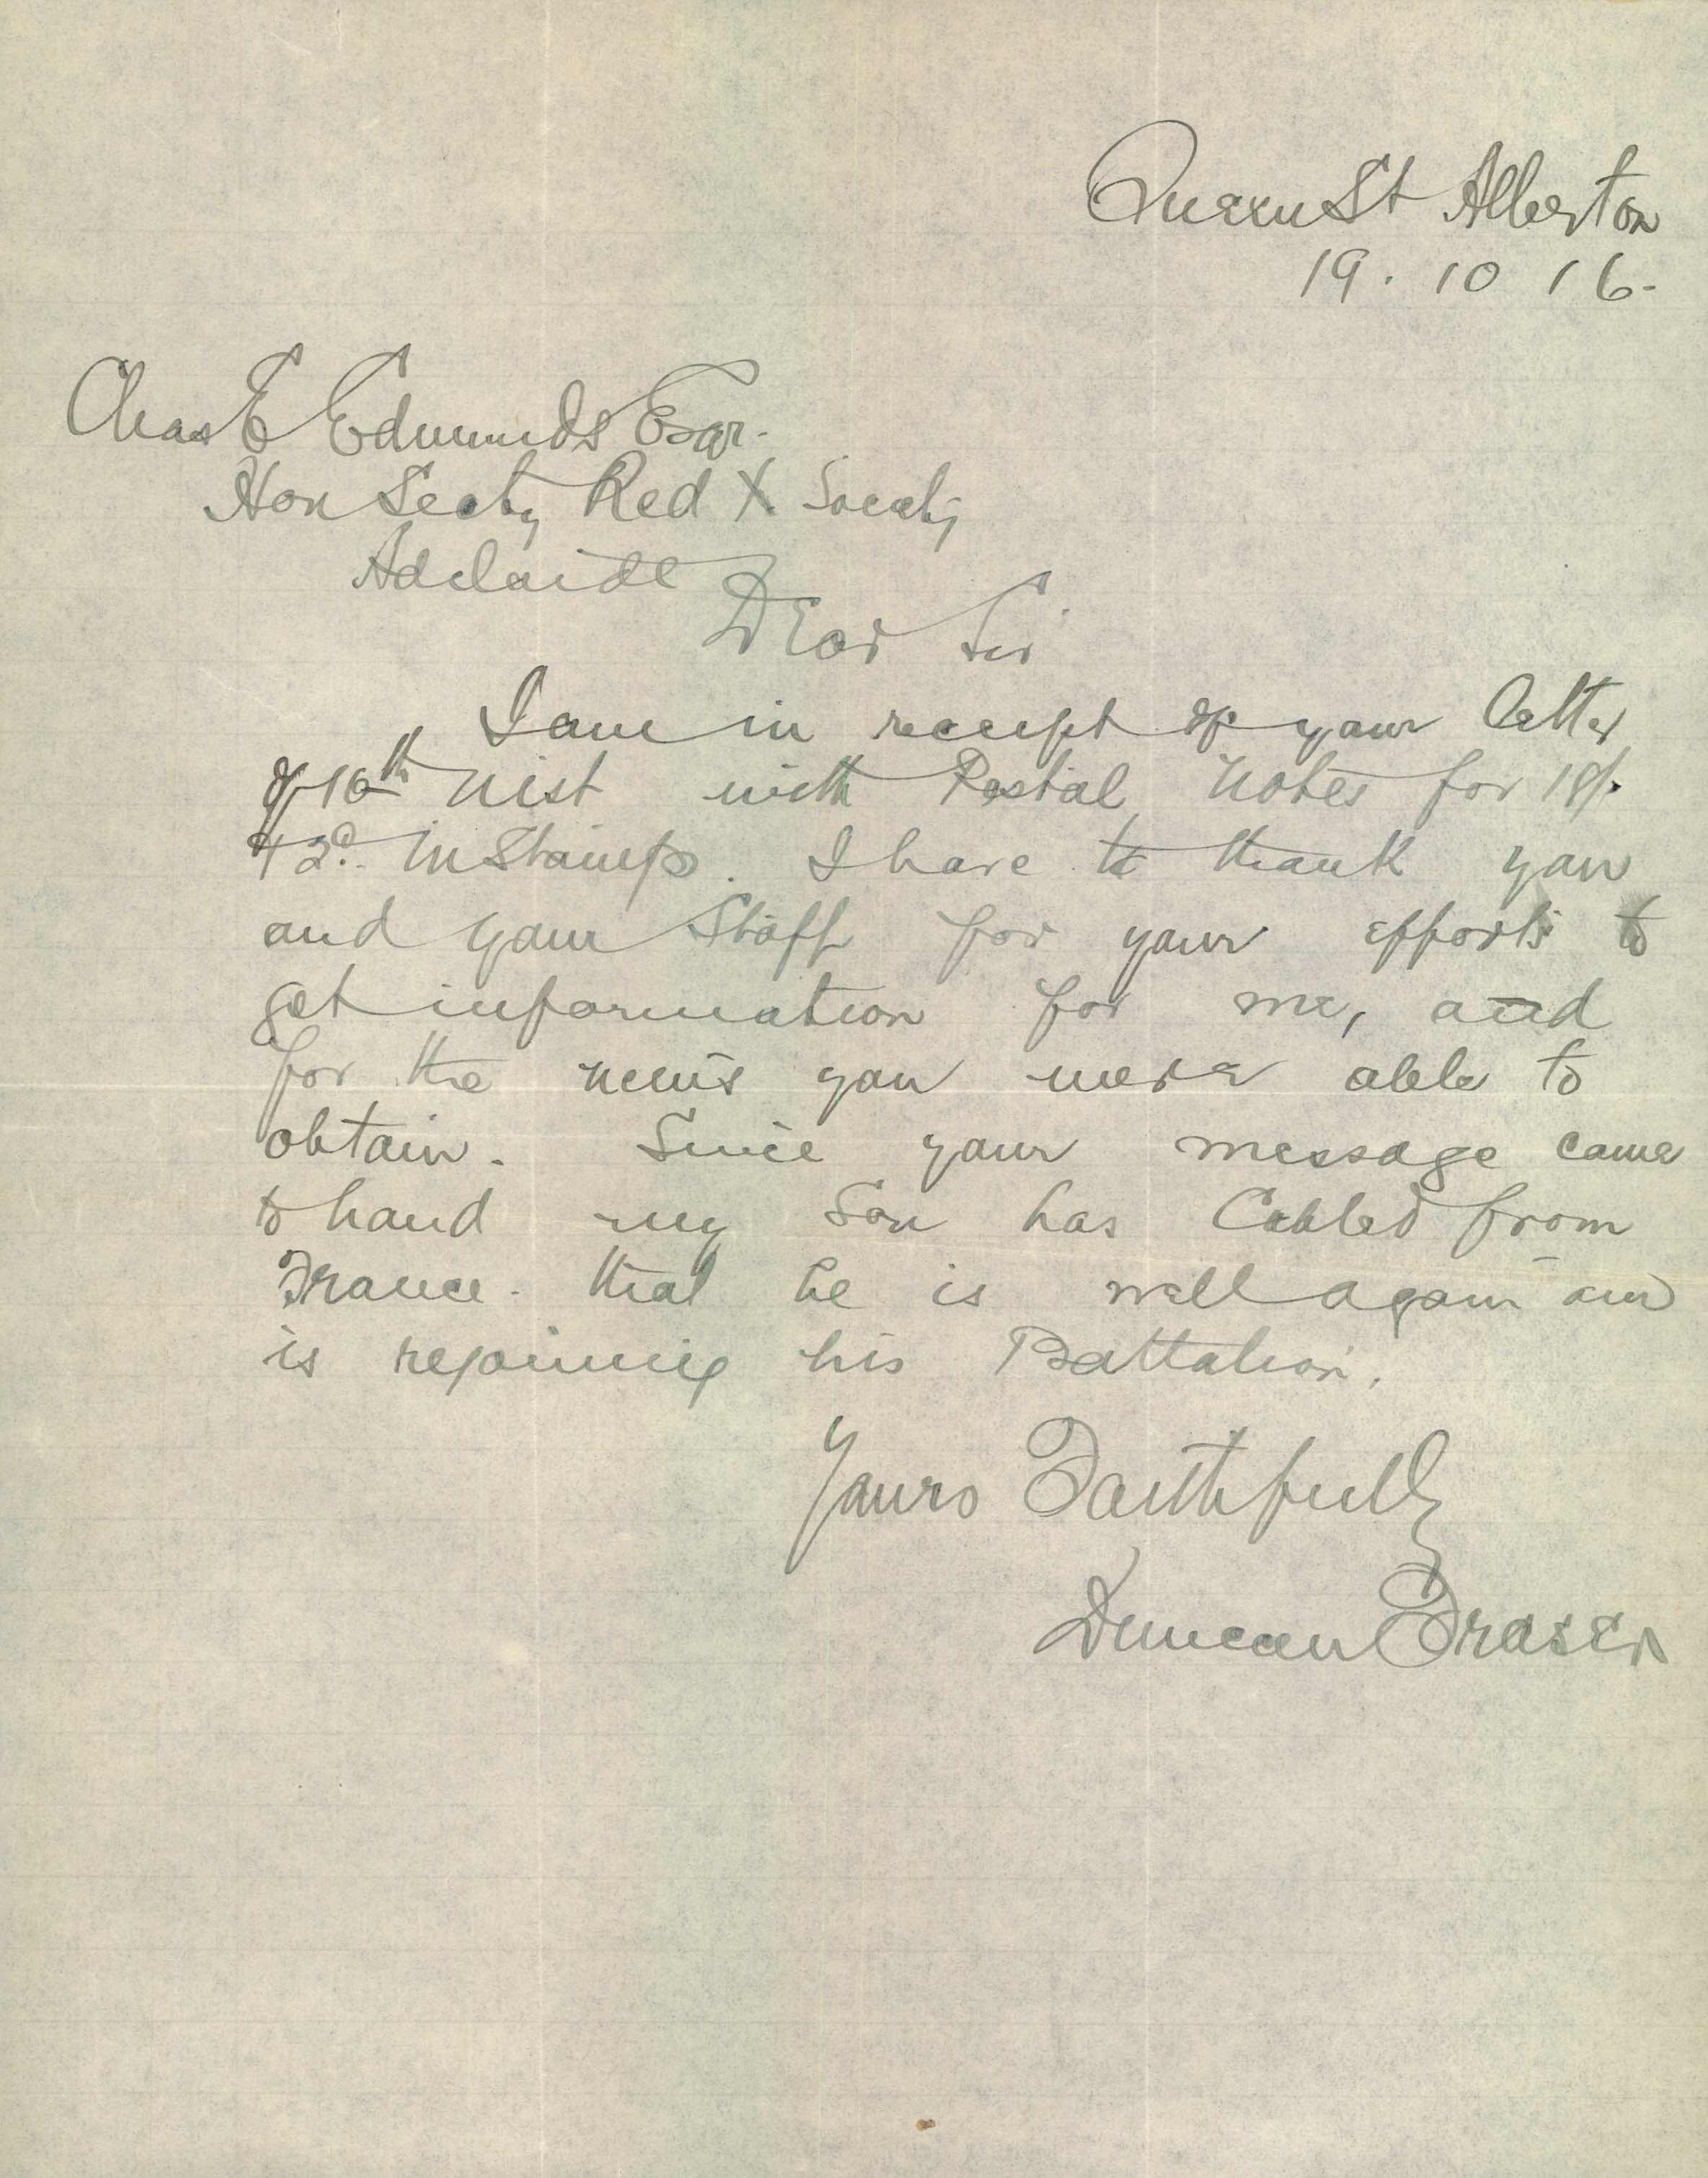 Queen St Alberton
19 . 10 16 -
Chas E Edmunds Esqr.
Hon Secty Red X Society
Adelaide
Dear Sir
I am in receipt of your letter
of 16th inst with Postal Notes for 18/-
+ 2d. in Stamps. I have to thank you
and your Staff for your efforts to
get information for me, and
for the news you were able to
obtain. Since your message came
to hand my Son has Cabled from
France. that he is well again and
is rejoining his Battalion.
Yours Faithfully
Duncan Fraser